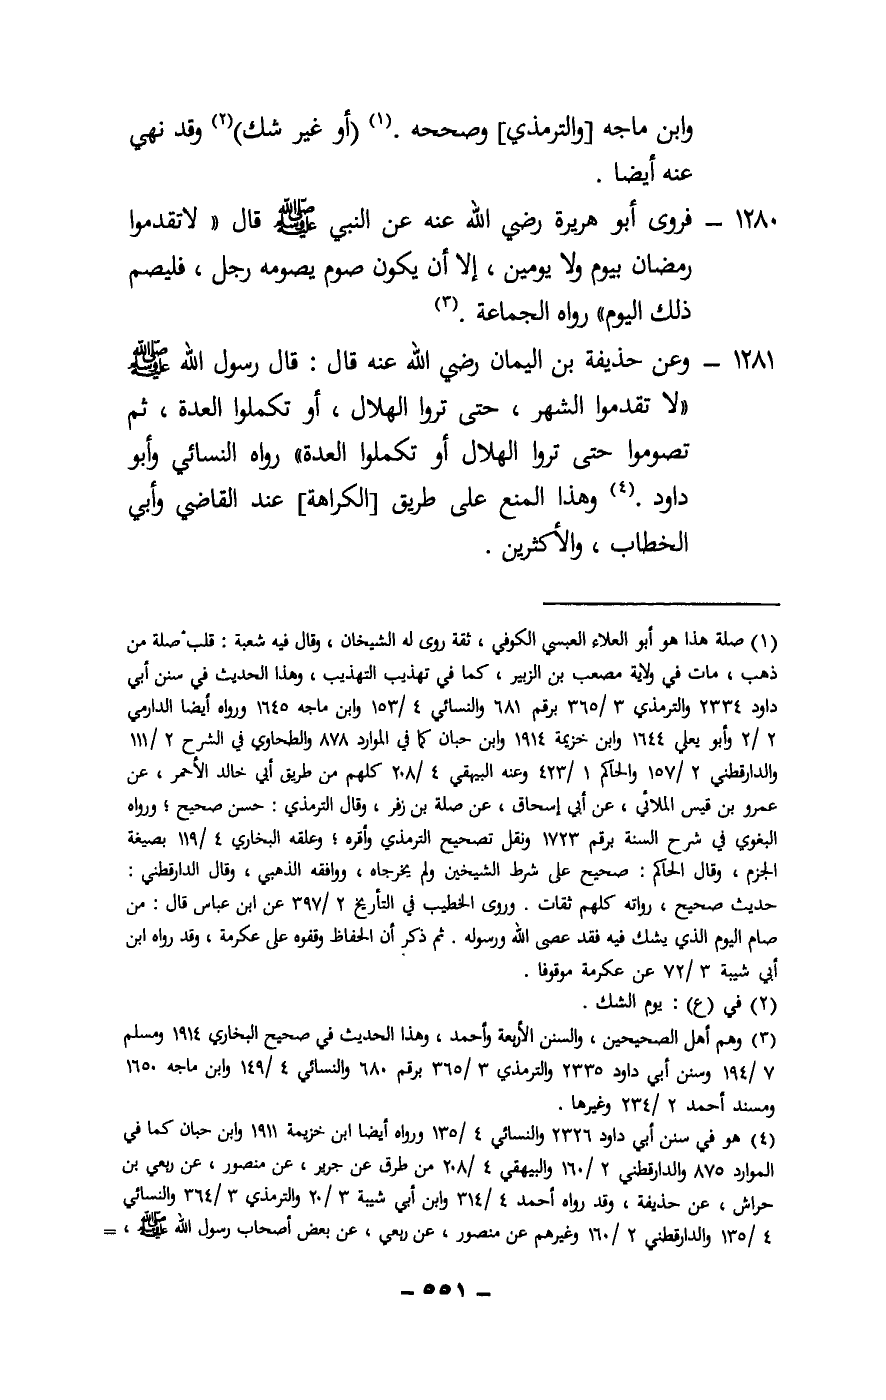 وابن ماجه [والترمذي] وصححه .(١) (أو غير شك)(٢) وقد نهي
عنه أيضا .
١٢٨٠ – فروى أبو هريرة رضي الله عنه عن النبي ﷺ قال « لاتقدموا
رمضان بيوم ولا يومين ، إلا أن يكون صوم يصومه رجل ، فليصم
ذلك اليوم» رواه الجماعة .(٣)
١٢٨١ – وعن حذيفة بن اليمان رضي الله عنه قال : قال رسول الله ﷺ
«لا تقدموا الشهر ، حتى تروا الهلال ، أو تكملوا العدة ، ثم
تصوموا حتى تروا الهلال أو تكملوا العدة» رواه النسائي وأبو
داود .(٤) وهذا المنع على طريق [الكراهة] عند القاضي وأبي
الخطاب ، والأكثرين .
(١) صلة هذا هو أبو العلاء العبسي الكوفي ، ثقة روى له الشيخان ، وقال فيه شعبة : قلب صلة من
ذهب ، مات في ولاية مصعب بن الزبير ، كما في تهذيب التهذيب ، وهذا الحديث في سنن أبي
داود ٢٣٣٤ والترمذي ٣ /٣٦٥ برقم ٦٨١ والنسائي ٤ /١٥٣ وابن ماجه ١٦٤٥ ورواه أيضا الدارمي
٢ /٢ وأبو يعلى ١٦٤٤ وابن خزيمة ١٩١٤ وابن حبان كما في الموارد ٨٧٨ والطحاوي في الشرح ٢ /١١١
والدارقطني ٢ /١٥٧ والحاكم ١ /٤٢٣ وعنه البيهقي ٤ /٢٠٨ كلهم من طريق أبي خالد الأحمر ، عن
عمرو بن قيس الملائي ، عن أبي إسحاق ، عن صلة بن زفر ، وقال الترمذي : حسن صحيح ؛ ورواه
البغوي في شرح السنة برقم ١٧٢٣ ونقل تصحيح الترمذي وأقره ؛ وعلقه البخاري ٤ /١١٩ بصيغة
الجزم ، وقال الحاكم : صحيح على شرط الشيخين ولم يخرجاه ، ووافقه الذهبي ، وقال الدارقطني :
حديث صحيح ، رواته كلهم ثقات . وروى الخطيب في التأريخ ٢ /٣٩٧ عن ابن عباس قال : من
صام اليوم الذي يشك فيه فقد عصى الله ورسوله . ثم ذكر أن الحفاظ وقفوه على عكرمة ، وقد رواه ابن
أبي شيبة ٣ /٧٢ عن عكرمة موقوفا .
(٢) في (ع) : يوم الشك .
(٣) وهم أهل الصحيحين ، والسنن الأربعة وأحمد ، وهذا الحديث في صحيح البخاري ١٩١٤ ومسلم
٧ /١٩٤ وسنن أبي داود ٢٣٣٥ والترمذي ٣ /٣٦٥ برقم ٦٨٠ والنسائي ٤ /١٤٩ وابن ماجه ١٦٥٠
ومسند أحمد ٢ /٢٣٤ وغيرها .
(٤) هو في سنن أبي داود ٢٣٢٦ والنسائي ٤ /١٣٥ ورواه أيضا ابن خزيمة ١٩١١ وابن حبان كما في
الموارد ٨٧٥ والدارقطني ٢ /١٦٠ والبيهقي ٤ /٢٠٨ من طرق عن جرير ، عن منصور ، عن ربعي بن
حراش ، عن حذيفة ، وقد رواه أحمد ٤ /٣١٤ وابن أبي شيبة ٣ /٢٠ والترمذي ٣ /٣٦٤ والنسائي
٤ /١٣٥ والدارقطني ٢ /١٦٠ وغيرهم عن منصور ، عن ربعي ، عن بعض أصحاب رسول الله ﷺ ، =
– ٥٥١ –